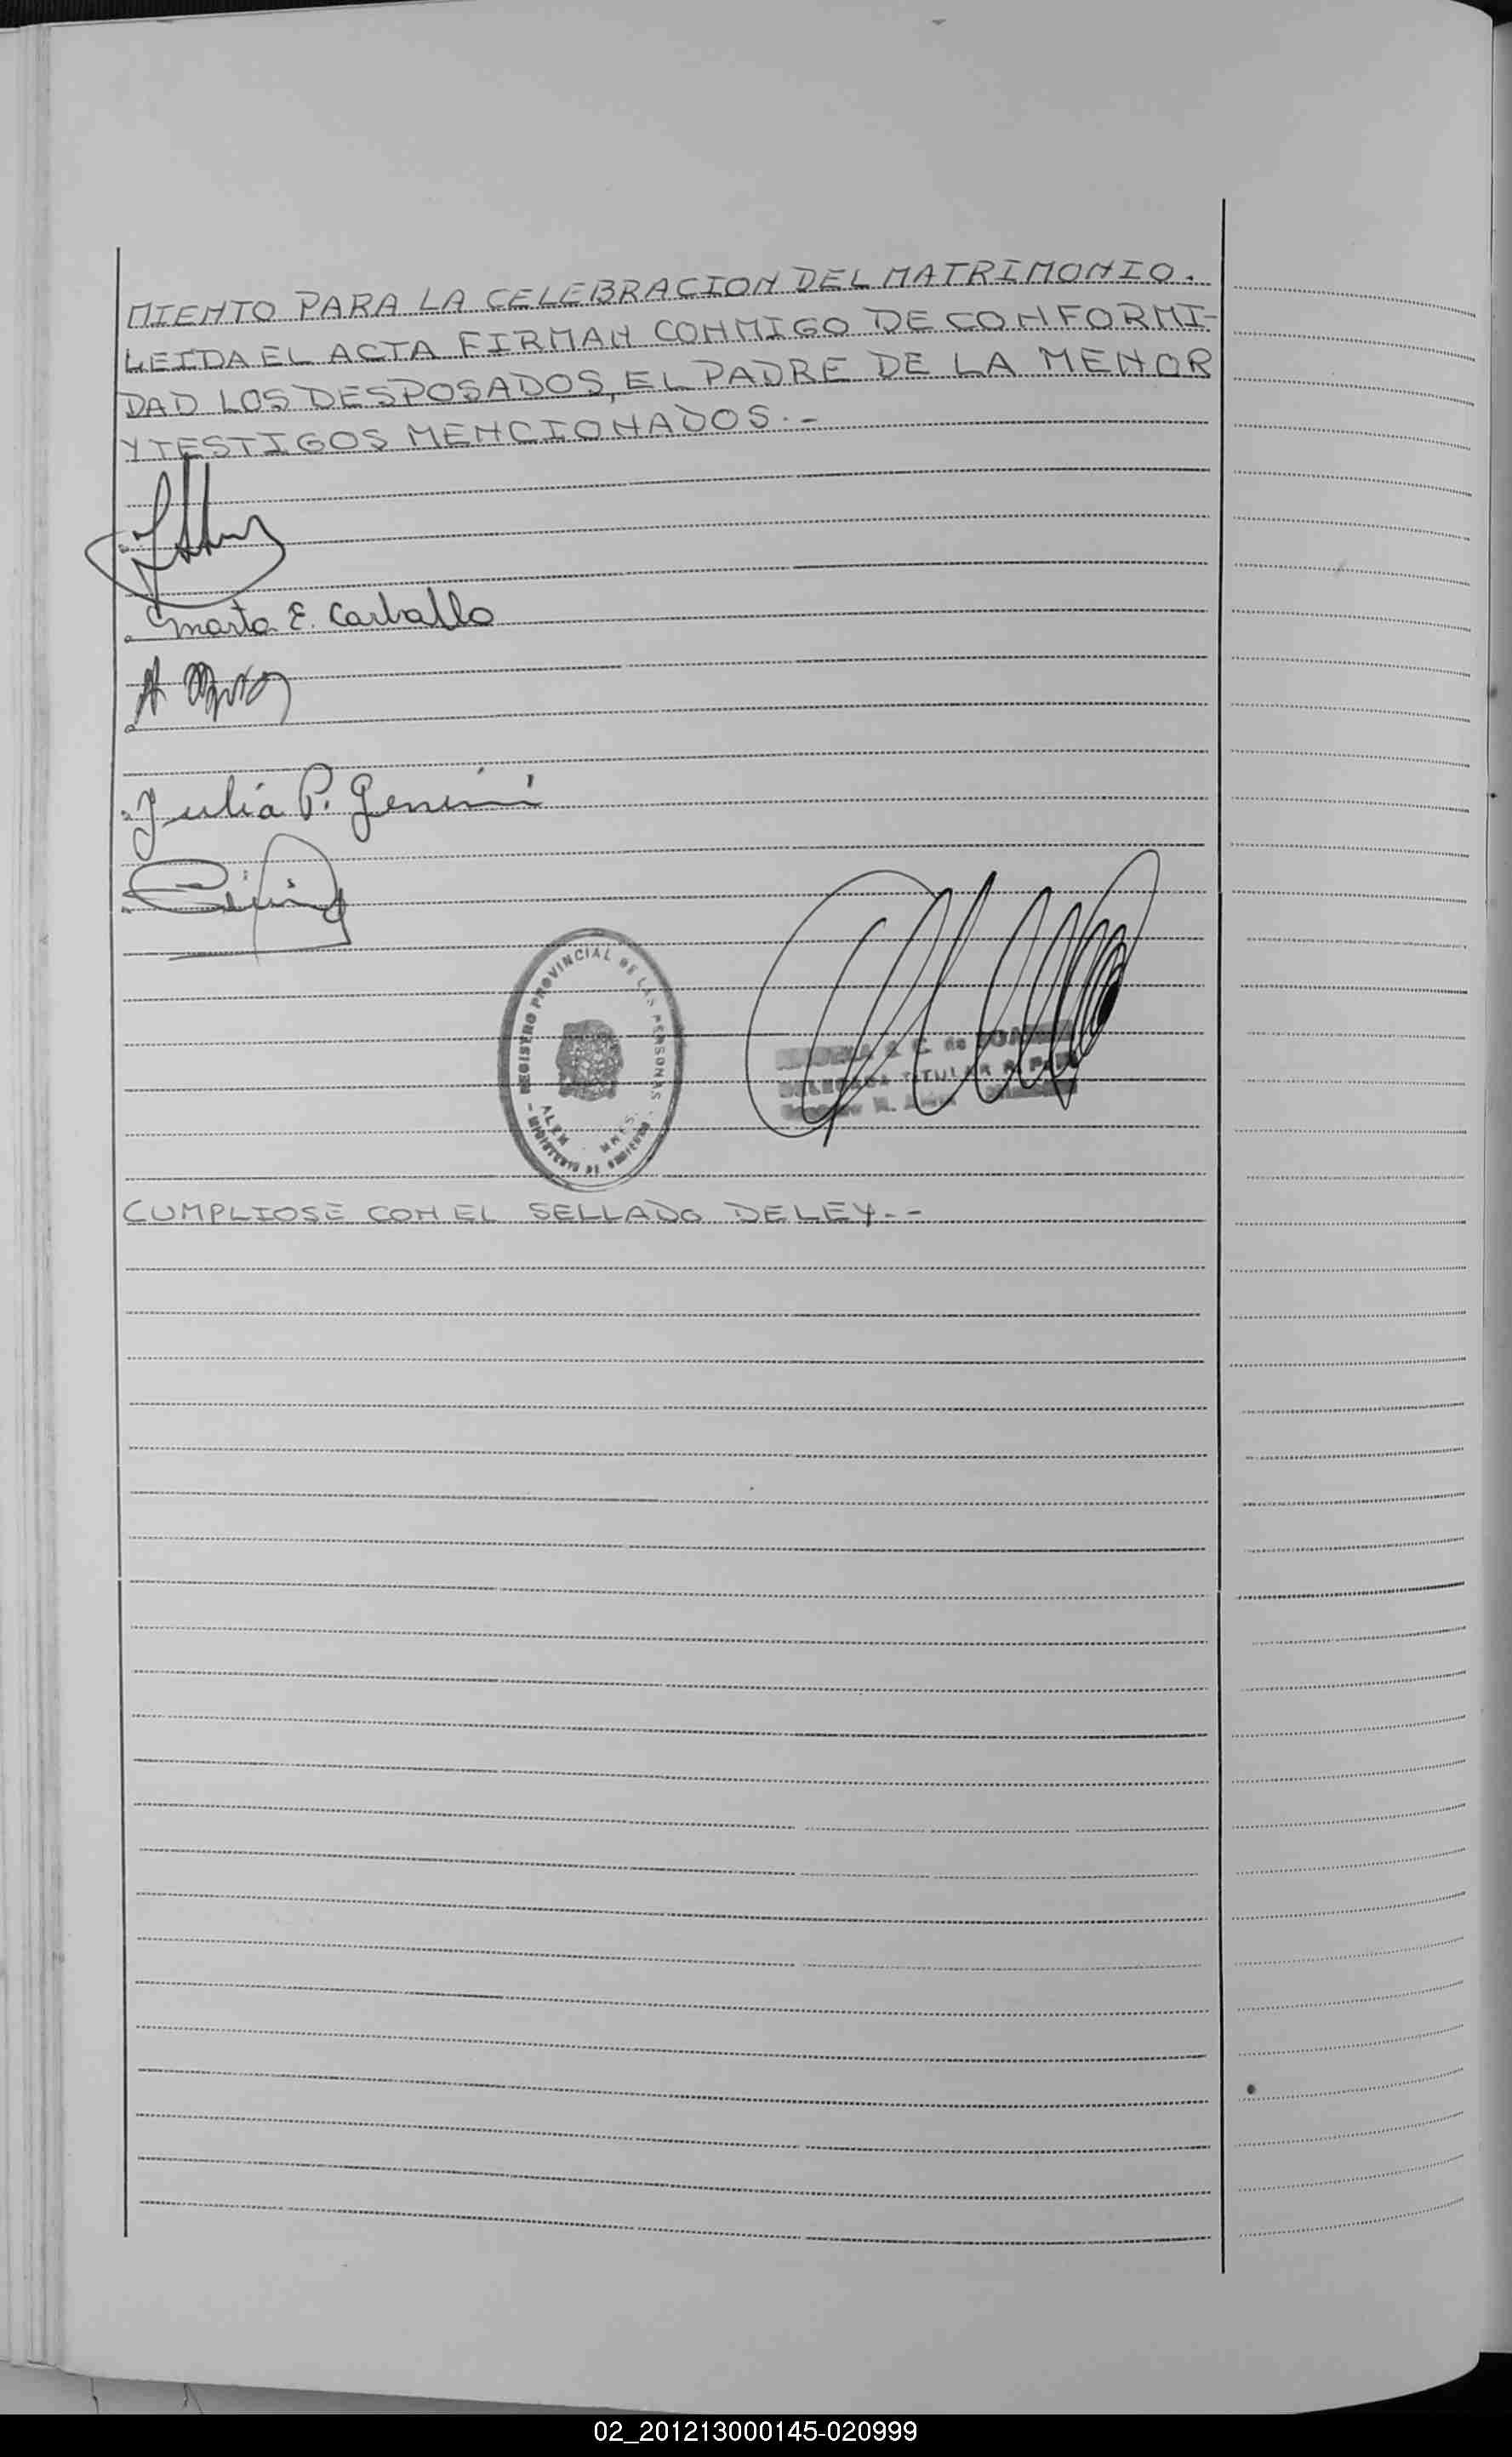 MIENTO PARA LA CELEBRACION DEL MATRIMONIO.
LEIDA EL ACTA FIRMAN CONMIGO DE CONFORMI-
DAD LOS DESPOSADOS, EL PADRE DE LA MENOR
Y TESTIGOS MENCIONADOS.-
Marta E. Carballo
Julia P. Genini
- REGISTRO PROVINCIAL DE LAS PERSONAS -
MINISTERIO DE GOBIERNO
ALEM - MNES.
C. de
TITULAR R. P. P.
CUMPLIOSE CON EL SELLADO DE LEY.-
02_201213000145-020999